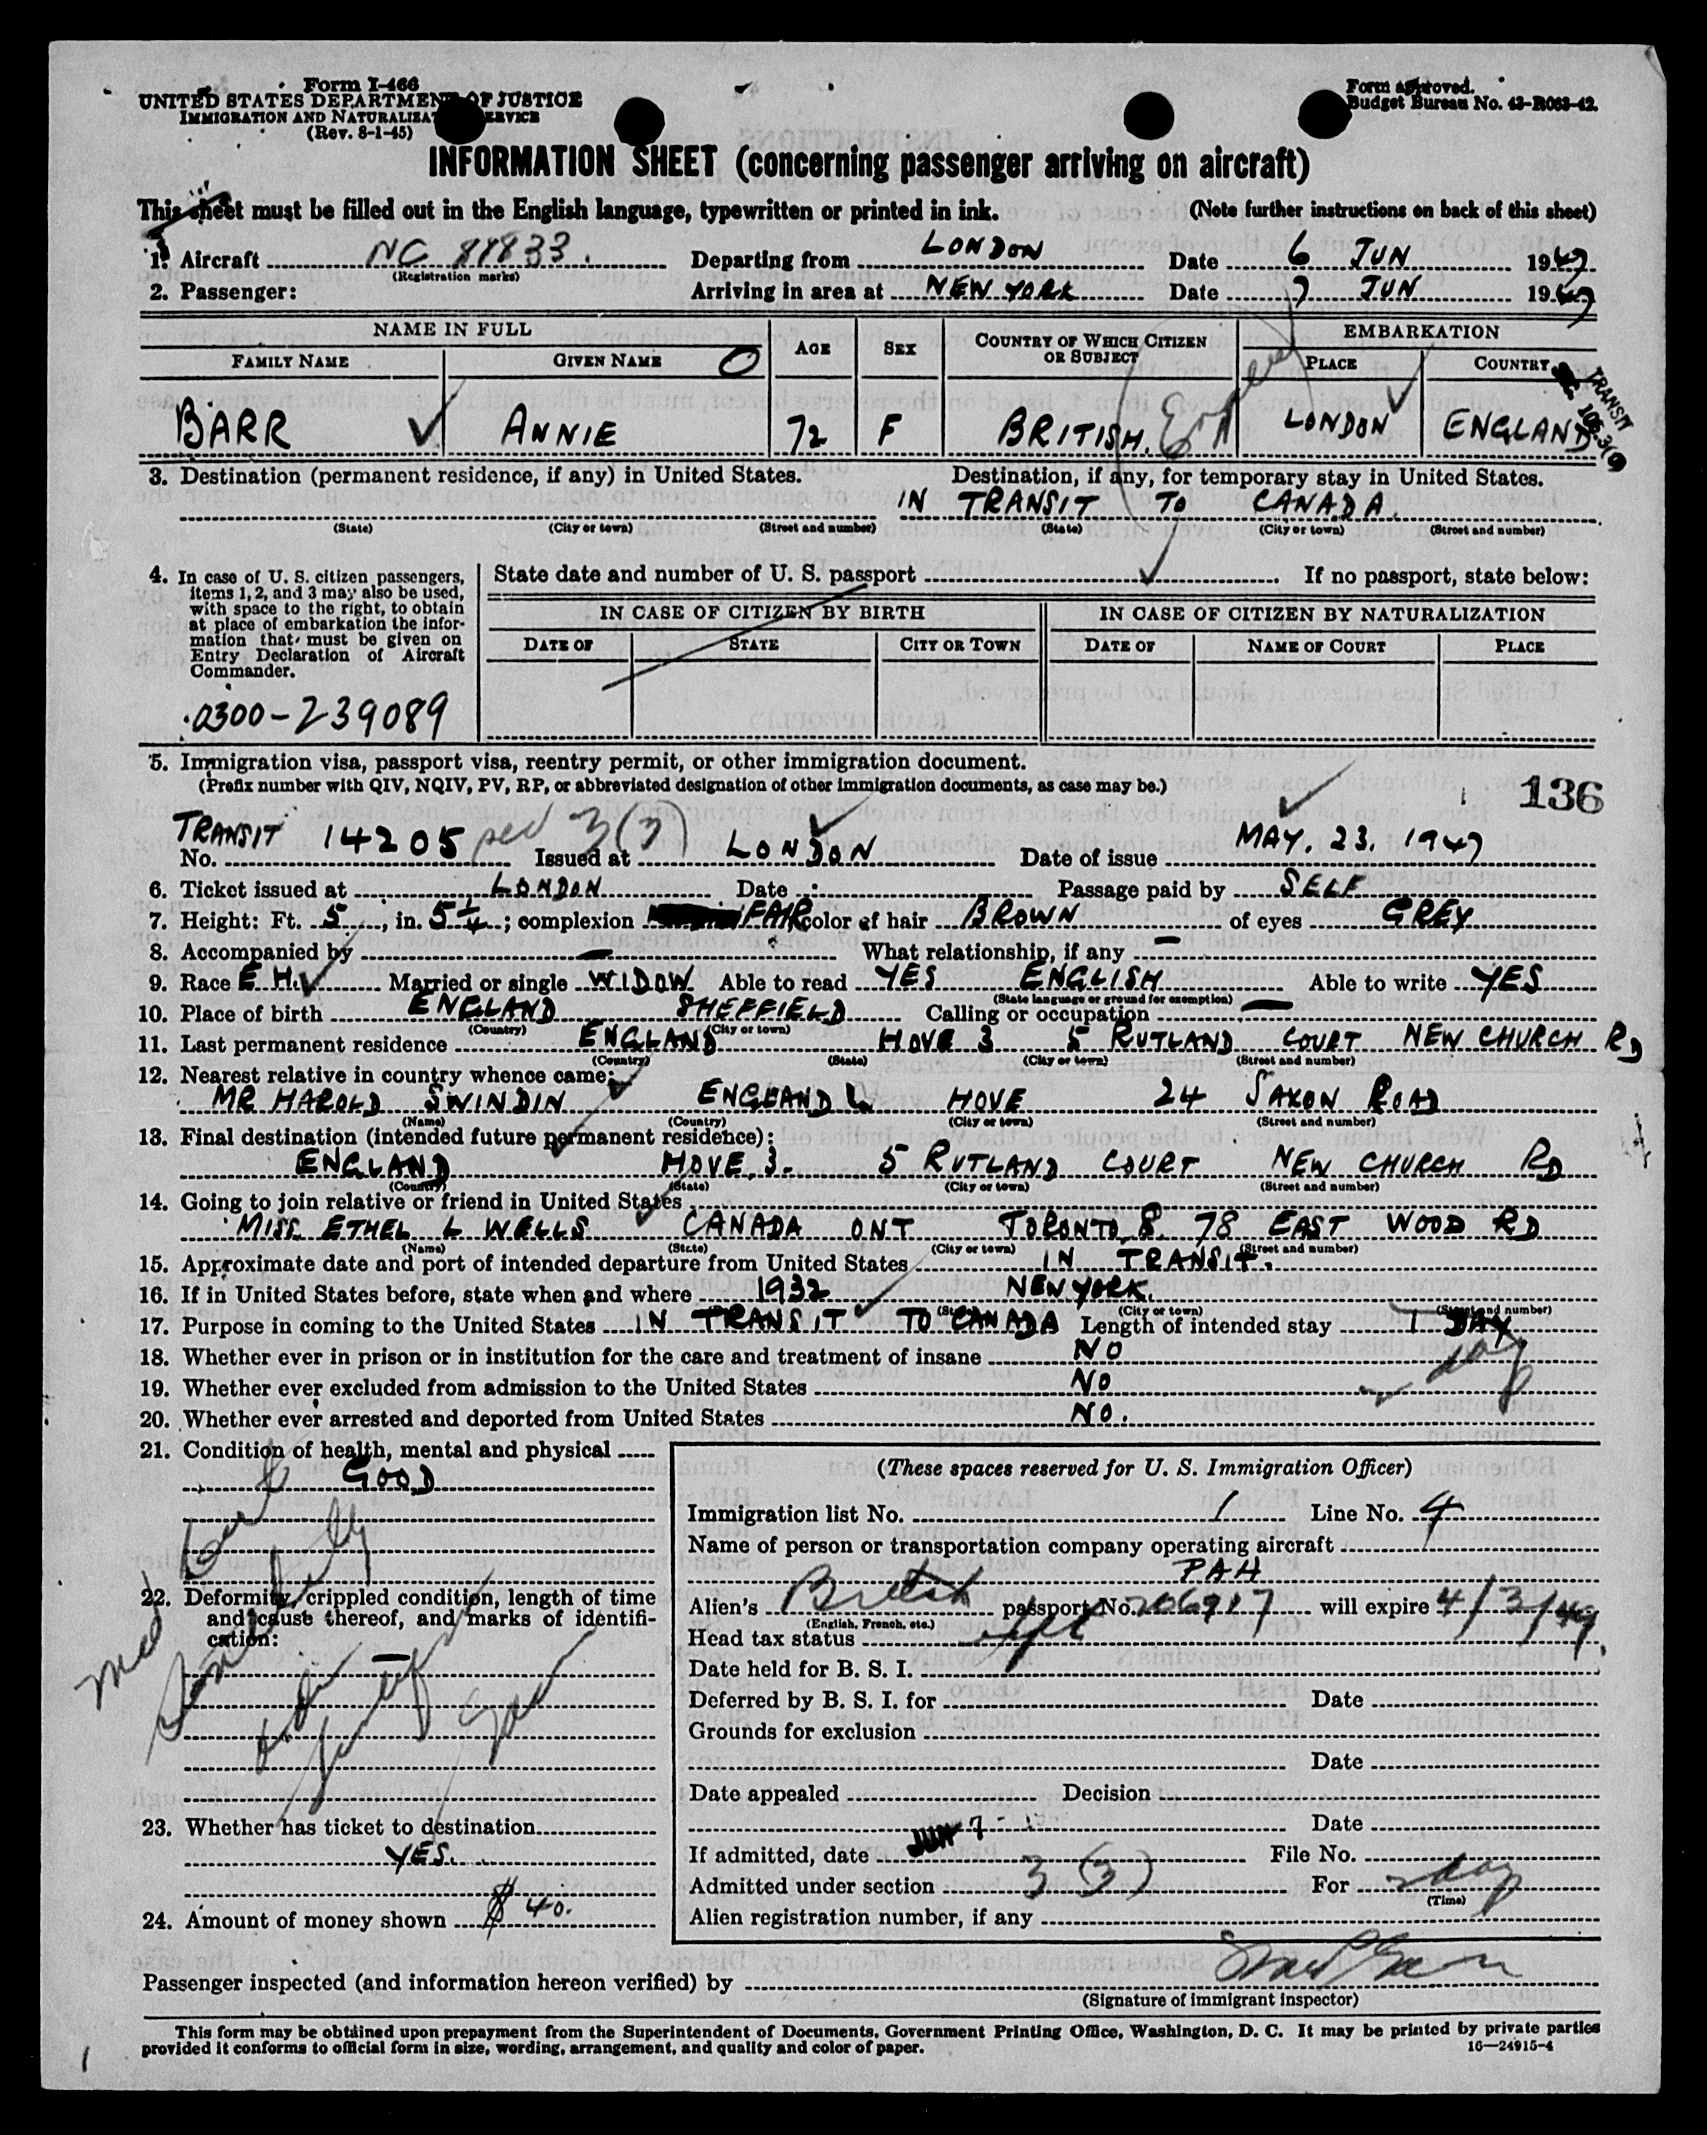 Form I-466
UNITED STATES DEPARTMENT OF JUSTICE
IMMIGRATION AND NATURALIZATION SERVICE
(Rev. 8-1-45)
Form approved.
Budget Bureau No. 43-R063-42.
INFORMATION SHEET (concerning passenger arriving on aircraft)
This sheet must be filled out in the English language, typewritten or printed in ink. (Note further instructions on back of this sheet)
1. Aircraft NC 88833. Departing from LONDON Date 6 JUN 1947
(Registration marks)
2. Passenger: Arriving in area at NEW YORK Date 7 JUN 1947
NAME IN FULL AGE SEX COUNTRY OF WHICH CITIZEN OR SUBJECT EMBARKATION
FAMILY NAME GIVEN NAME PLACE COUNTRY
TRANSIT
BARR ANNIE 72 F BRITISH. LONDON ENGLAND
3. Destination (permanent residence, if any) in United States. Destination, if any, for temporary stay in United States.
IN TRANSIT TO CANADA
(State) (City or town) (Street and number) (State) (City or town) (Street and number)
4. In case of U. S. citizen passengers, items 1, 2, and 3 may also be used, with space to the right, to obtain at place of embarkation the information that must be given on Entry Declaration of Aircraft Commander.
State date and number of U. S. passport If no passport, state below:
IN CASE OF CITIZEN BY BIRTH IN CASE OF CITIZEN BY NATURALIZATION
DATE OF STATE CITY OR TOWN DATE OF NAME OF COURT PLACE
0300-239089
5. Immigration visa, passport visa, reentry permit, or other immigration document.
(Prefix number with QIV, NQIV, PV, RP, or abbreviated designation of other immigration documents, as case may be.)
136
TRANSIT
No. 14205 3(3) Issued at LONDON Date of issue MAY. 23. 1947
6. Ticket issued at LONDON Date Passage paid by SELF
7. Height: Ft. 5, in. 5¼; complexion FAIR color of hair BROWN of eyes GREY
8. Accompanied by — What relationship, if any —
9. Race E H. Married or single WIDOW Able to read YES ENGLISH Able to write YES
(State language or ground for exemption)
10. Place of birth ENGLAND SHEFFIELD Calling or occupation —
(Country) (City or town)
11. Last permanent residence ENGLAND HOVE 3 5 RUTLAND COURT NEW CHURCH RD
(Country) (State) (City or town) (Street and number)
12. Nearest relative in country whence came:
MR HAROLD SWINDIN ENGLAND HOVE 24 SAXON ROAD
(Name) (Country) (City or town) (Street and number)
13. Final destination (intended future permanent residence):
ENGLAND HOVE, 3. 5 RUTLAND COURT NEW CHURCH RD
(Country) (State) (City or town) (Street and number)
14. Going to join relative or friend in United States
MISS. ETHEL L WELLS CANADA ONT TORONTO, 8. 78 EAST WOOD RD
(Name) (State) (City or town) (Street and number)
15. Approximate date and port of intended departure from United States IN TRANSIT.
16. If in United States before, state when and where 1932 NEW YORK.
(State) (City or town) (Street and number)
17. Purpose in coming to the United States IN TRANSIT TO CANADA Length of intended stay 1 DAY
18. Whether ever in prison or in institution for the care and treatment of insane NO
19. Whether ever excluded from admission to the United States NO
20. Whether ever arrested and deported from United States NO.
21. Condition of health, mental and physical
GOOD
22. Deformity, crippled condition, length of time and cause thereof, and marks of identification:
—
23. Whether has ticket to destination
YES.
24. Amount of money shown $ 40.
(These spaces reserved for U. S. Immigration Officer)
Immigration list No. 1 Line No. 4
Name of person or transportation company operating aircraft
PAA
Alien's British passport No. 206917 will expire 4/3/49.
(English, French, etc.)
Head tax status
Date held for B. S. I.
Deferred by B. S. I. for Date
Grounds for exclusion
Date
Date appealed Decision
Date
If admitted, date JUN 7 File No.
Admitted under section 3 (3) For
(Time)
Alien registration number, if any
Passenger inspected (and information hereon verified) by
(Signature of immigrant inspector)
This form may be obtained upon prepayment from the Superintendent of Documents, Government Printing Office, Washington, D. C. It may be printed by private parties
provided it conforms to official form in size, wording, arrangement, and quality and color of paper.
16—24915-4